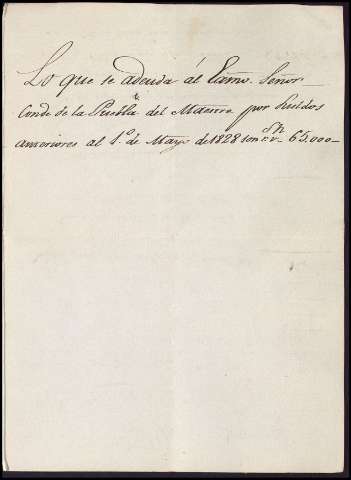 Lo que se adeuda ál Exmo. Señor
Conde de la Puebla del Maestre por sueldos
anteriores al 1.º de Mayo de 1828 son rs. vn. 65.000